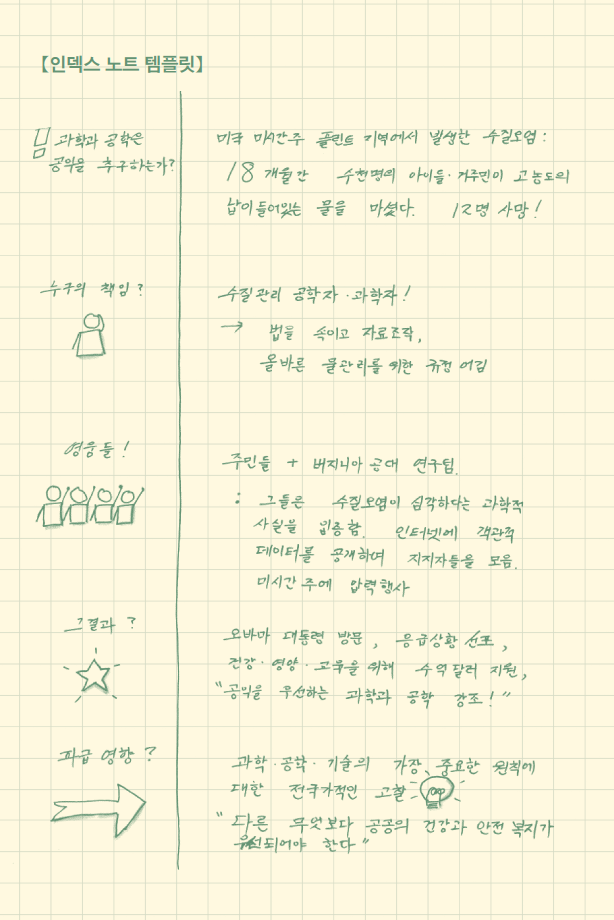 【인덱스 노트 템플릿】
과학과 공학은
공익을 추구하는가?
미국 미시간주 플린트 지역에서 발생한 수질오염 :
18개월간 수천명의 아이들·거주민이 고농도의
납이 들어있는 물을 마셨다. 12명 사망!
누구의 책임?
수질관리 공학자·과학자!
→ 법을 속이고 자료조작,
올바른 물관리를 위한 규정 어김
영웅들!
주민들 + 버지니아 공대 연구팀.
: 그들은 수질오염이 심각하다는 과학적
사실을 입증함. 인터넷에 객관적
데이터를 공개하며 지지자들을 모음.
미시간 주에 압력행사
그 결과?
오바마 대통령 방문, 응급상황 선포,
건강·영양·교육을 위해 수억달러 지원,
"공익을 우선하는 과학과 공학 강조!"
파급 영향?
과학·공학·기술의 가장 중요한 원칙에
대한 전국가적인 고찰
"다른 무엇보다 공공의 건강과 안전 복지가
우선되어야 한다"